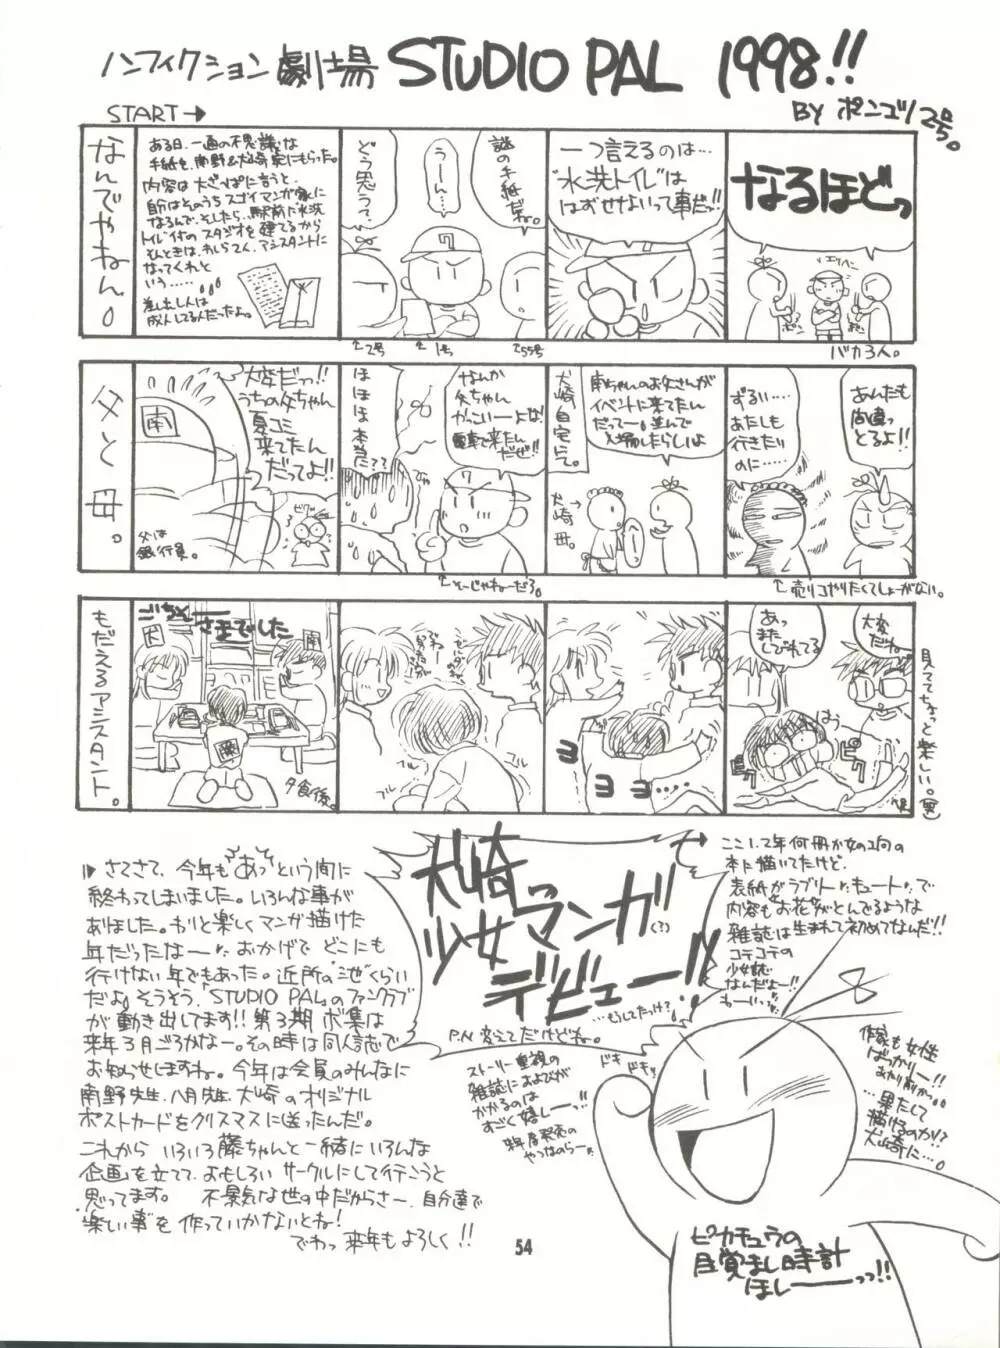 ノンフィクション劇場 STUDIO PAL 1998!!
BY ポンコツ2号。
START→
なんでやねん。
ある日、一通の不思議な
手紙を、南野&犬崎家にもらった。
内容は大ざっぱに言うと、
自分はそのうちスゴイマンガ家に
なるんで、そしたら、駅前に水洗
トイレ付のスタジオを建てるから
そんときは、
アシスタントに
なってくれと
いう……。
差し出し人は
成人してる人だったよ。
謎の手紙だね。
うーん…
どう思うって、
↑2号
↑1号
↑55号
一つ言えるのは…
"水洗トイレ"は
はずせないって事だっ!!
なるほどっ
バカ3人。
父と母。
大変だっ!!
うちの父ちゃん
夏コミ
来てたん
だってよ!!
南
父は
銀行員。
なんか
父ちゃん
かっこいーよな!
電車で来たん
だぜ!!
ほほほ本当だ??
↑そーじゃねーだろ。
犬崎自宅にて。
南ちゃんのお父さんが
イベントに来てたん
だってー。並んで
入場したらしいよ
犬崎母。
ずるい…
あたしも
行きたい
のに……
あんたも
間違っ
とるよ!!
↑売り子やりたくてしょーがない。
もだえるアシスタント。
ごちそーさまでした
犬
南
夕食後。
ブル
ヨ
ヨ
あっ
またしびれてる
大変
だね。
見ててちょっと楽しい。(笑)
さてさて、今年もあっという間に
終わってしまいました。いろんな事が
ありました。わりと楽しくマンガ描けた
年だったなー おかげで どこにも
行けない年でもあった。近所の池くらい
だよ。そうそう、「STUDIO PAL」のファンクラブ
が動き出してます!! 第3期ボ集は
来年3月ごろかなー。その時は同人誌で
お知らせしますね。今年は会員のみんなに
南野先生、八月先生、犬崎のオリジナル
ポストカードをクリスマスに送ったんだ。
これから いろいろ藤ちゃんと一緒にいろんな
企画を立てて、おもしろいサークルにして行こうと
思ってます。 不景気な世の中だからさー、自分達で
楽しい事を作っていかないとね!
でわっ来年もよろしく!!
54
犬崎
少女マンガ(?)
デビュー!!
…もうしてたっけ?
P.N 変えてだけどね。
ここ1、2年何冊か女の子向の
本に描いてたけど、
表紙がラブリー、キュートで
内容もお花がとんでるような
雑誌は生まれて初めてなんだ!!
コテコテの
少女誌
なんだよー!!
わーいっ
ストーリー重視の
雑誌におよびが
かかるのは
すごく嬉しーっ!!
ドキ
ドキッ
作家も女性
ばっかりー!!
あたり前か…
…果たして
描けるのか!?
犬崎に…。
ピカチュウの
目覚まし時計
ほしーーっっ!!